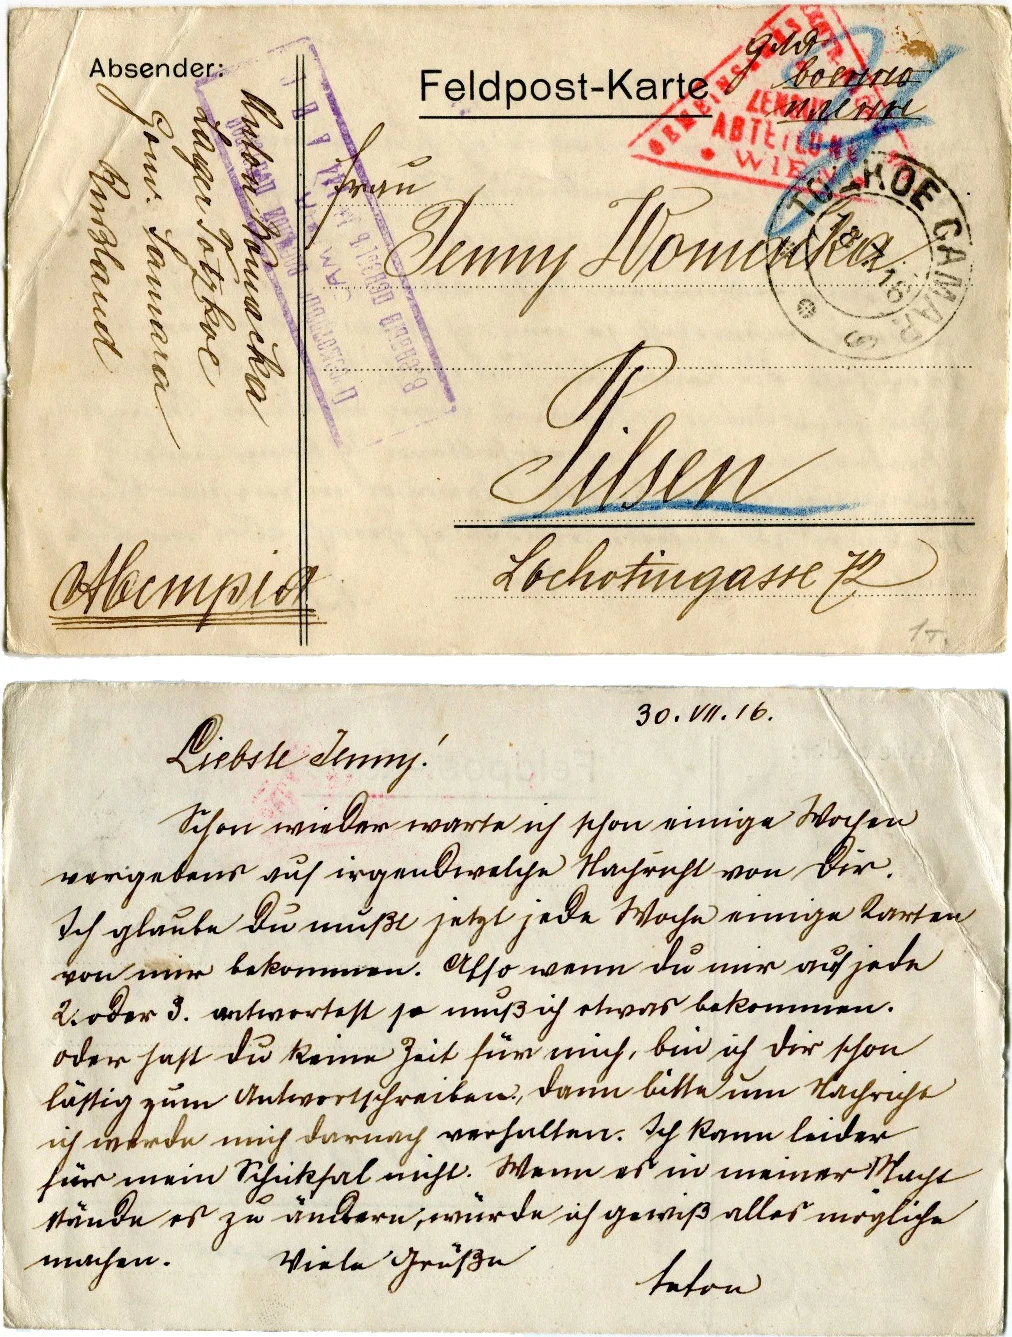 Absender:
Anton Womačka
Lager Totzkoe
Gouv. Samara
Rußland
Feldpost-Karte
военно
плѣнне
GEMEINSAMES ZENTR
ZENSUR
ABTEILUNG
WIEN
ТОЦКОЕ САМАР.
18 7 16
Frau
Jenny Womačka
Pilsen
Lochotingasse 72
Австрія
1т.
30. VII. 16.
Liebste Jenny!
Schon wieder warte ich schon einige Wochen
vergebens auf irgendwelche Nachricht von Dir.
Ich glaube Du mußt jetzt jede Woche einige Karten
von mir bekommen. Also wenn du mir auf jede
2. oder 3. antwortest so muß ich etwas bekommen.
oder hast du keine Zeit für mich, bin ich dir schon
lästig zum Antwortschreiben, dann bitte um Nachricht
ich werde mich darnach verhalten. Ich kann leider
für mein Schiksal nicht. Wenn es in meiner Macht
stände es zu ändern, würde ich gewiß alles mögliche
machen. Viele Grüße
Anton